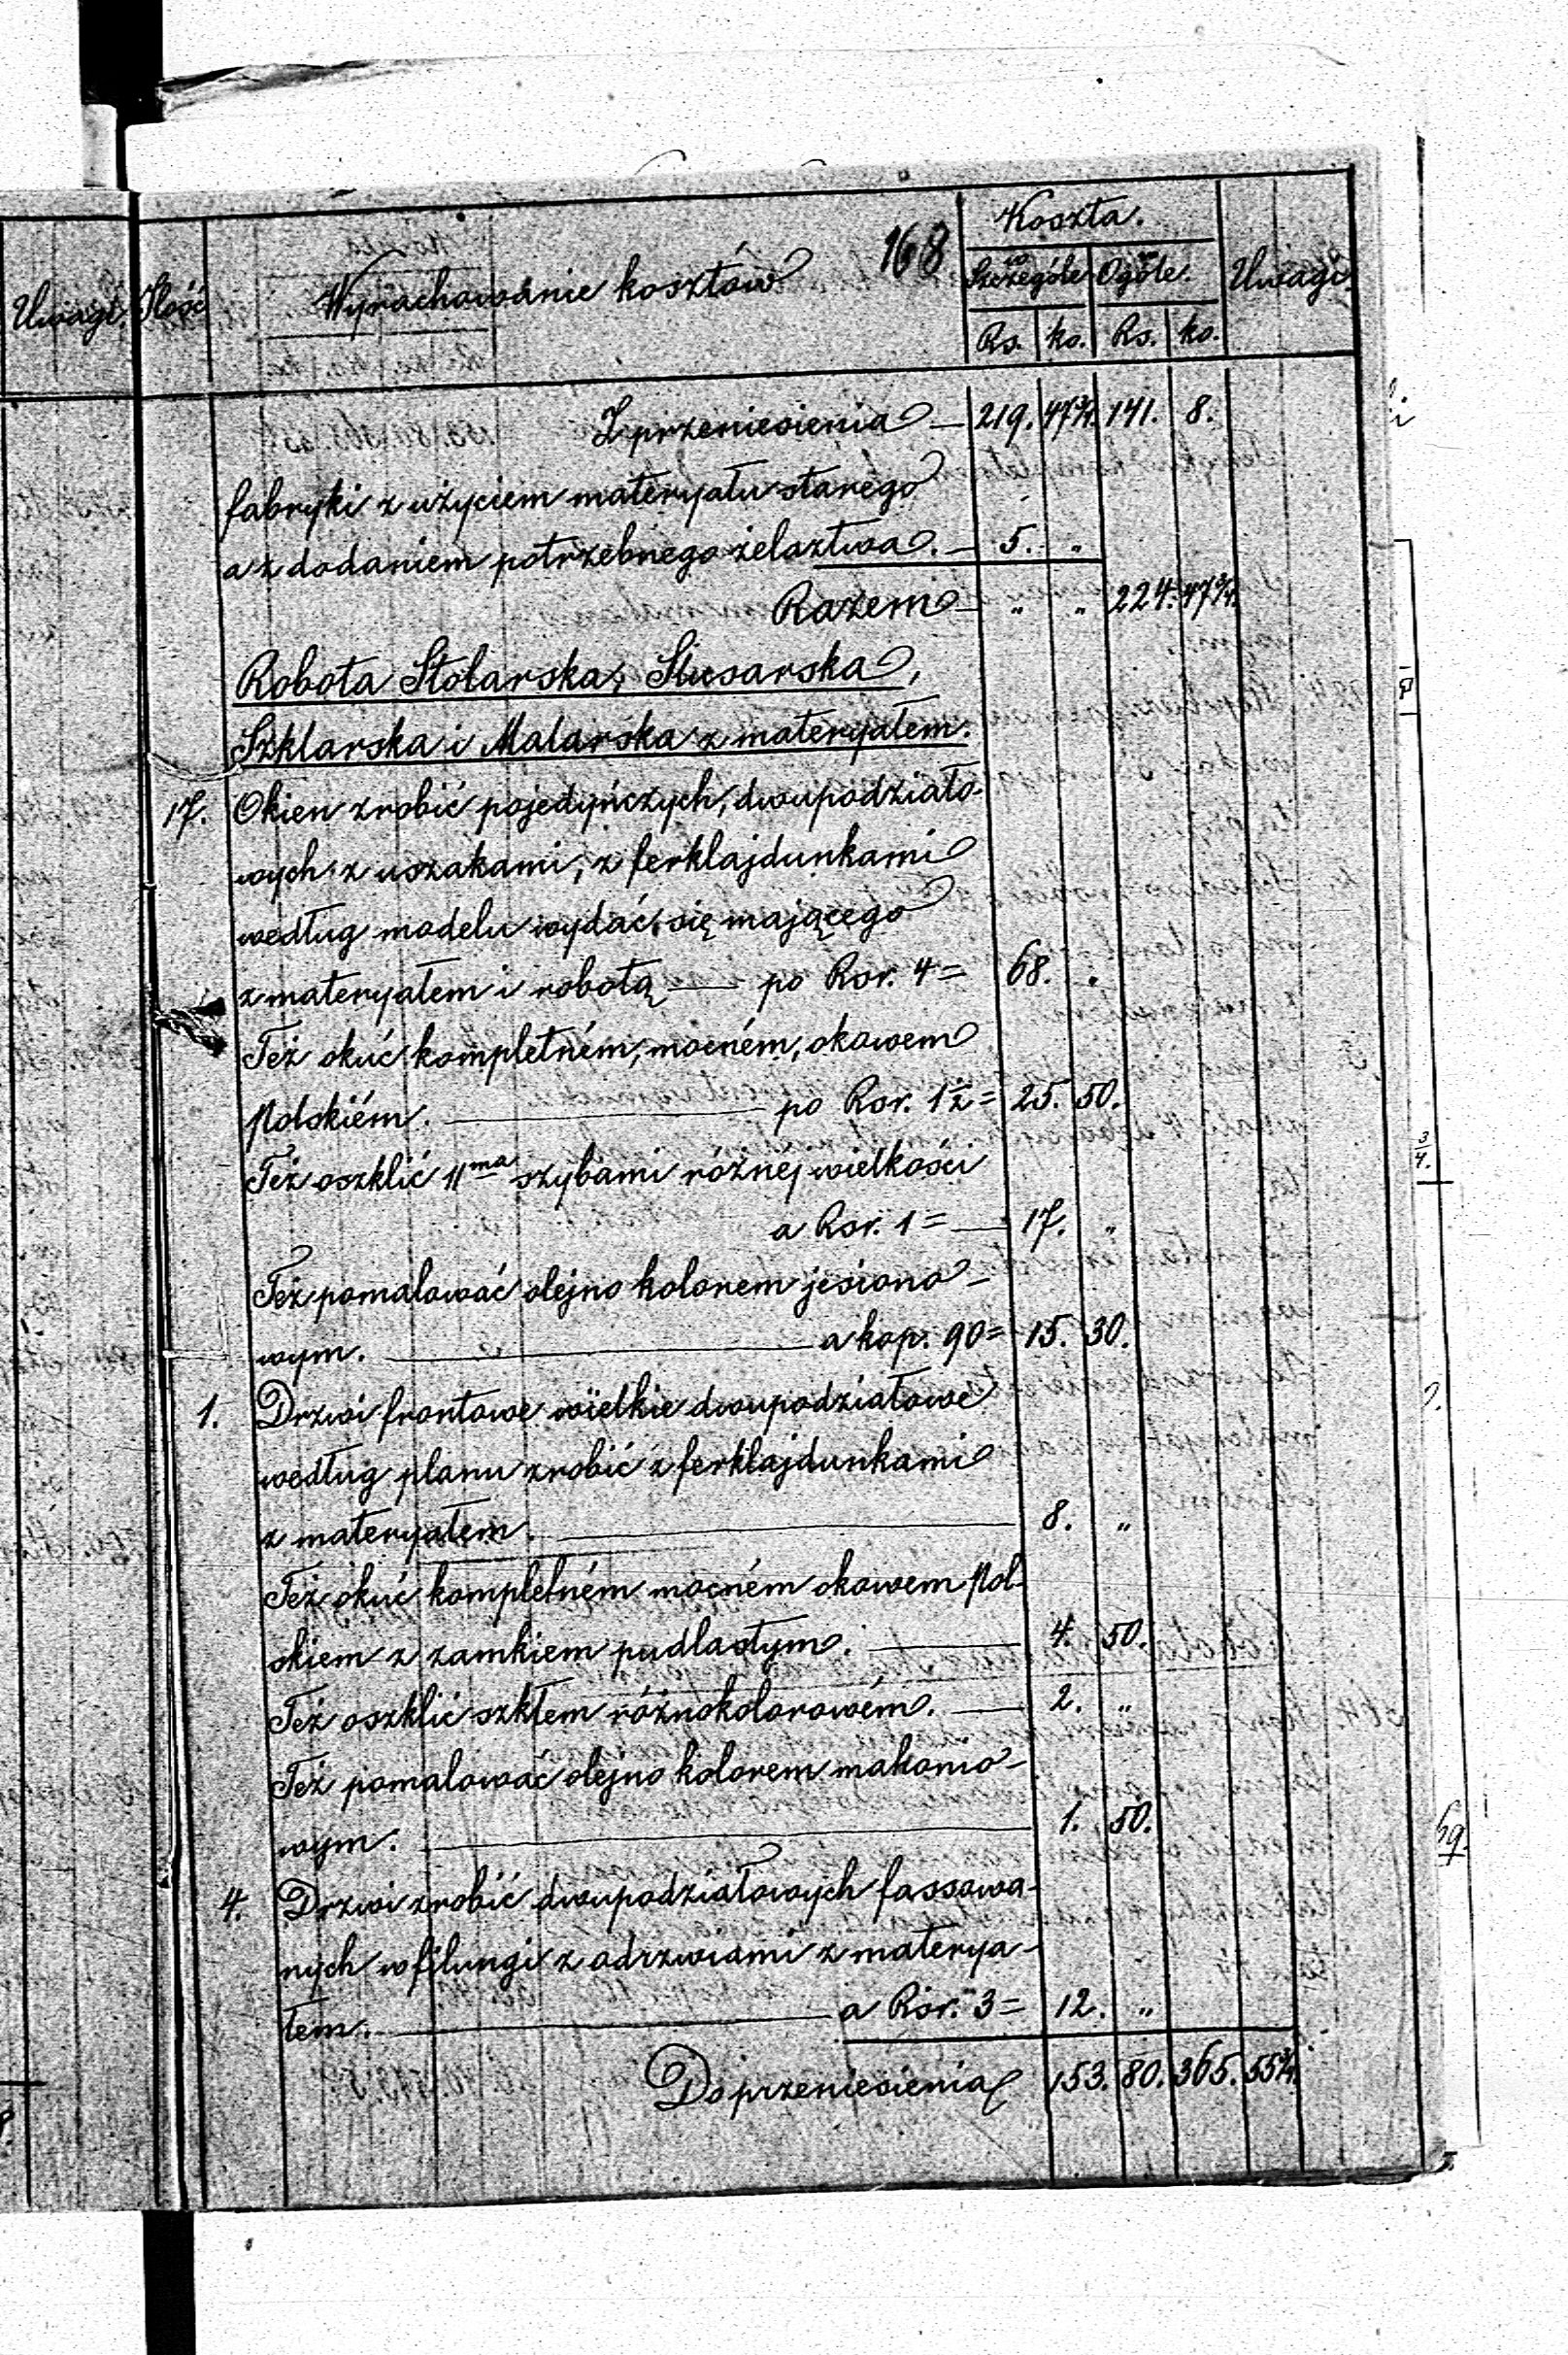 168
Koszta.
Uwagi. Ilość Wyrachowanie kosztów w Szczególe w Ogóle. Uwagi.
Rs. ko. Rs. ko.
Z przeniesienia — 219. 47¾. 141. 8.
fabryki z użyciem materyału starego
a z dodaniem potrzebnego żelaztwa. — 5. „
Razem — „ „ 224. 47¾.
Robota Stolarska, Slusarska,
Szklarska i Malarska z materyałem.
17. Okien zrobić pojedyńczych, dwupodziało-
wych z uszakami, z ferklajdunkami
według modelu wydać się mającego
z materyałem i robotą — po Rsr. 4 = 68. „
Też okuć kompletném, mocném, okowem
Polskiém. — po Rsr. 1½ = 25. 50.
Też oszklić 11ma szybami różnéj wielkości
a Rsr. 1 = — 17. „
Też pomalować olejno kolorem jesiono-
wym. — a kop. 90 = 15. 30.
1. Drzwi frontowe wielkie dwupodziałowe
według planu zrobić z ferklajdunkami
z materyałem. — 8. „
Też okuć kompletném mocném okowem Pol-
skiem z zamkiem pudlastym. — 4. 50.
Też oszklić szkłem różnokolorowém. — 2. „
Też pomalować olejno kolorem mahonio-
wym. — 1. 50.
4. Drzwi zrobić dwupodziałowych fassowa-
nych w filungi z odrzwiami z materya-
łem. — a Rsr. 3 = 12. „
Do przeniesienia 153. 80. 365. 55¾.